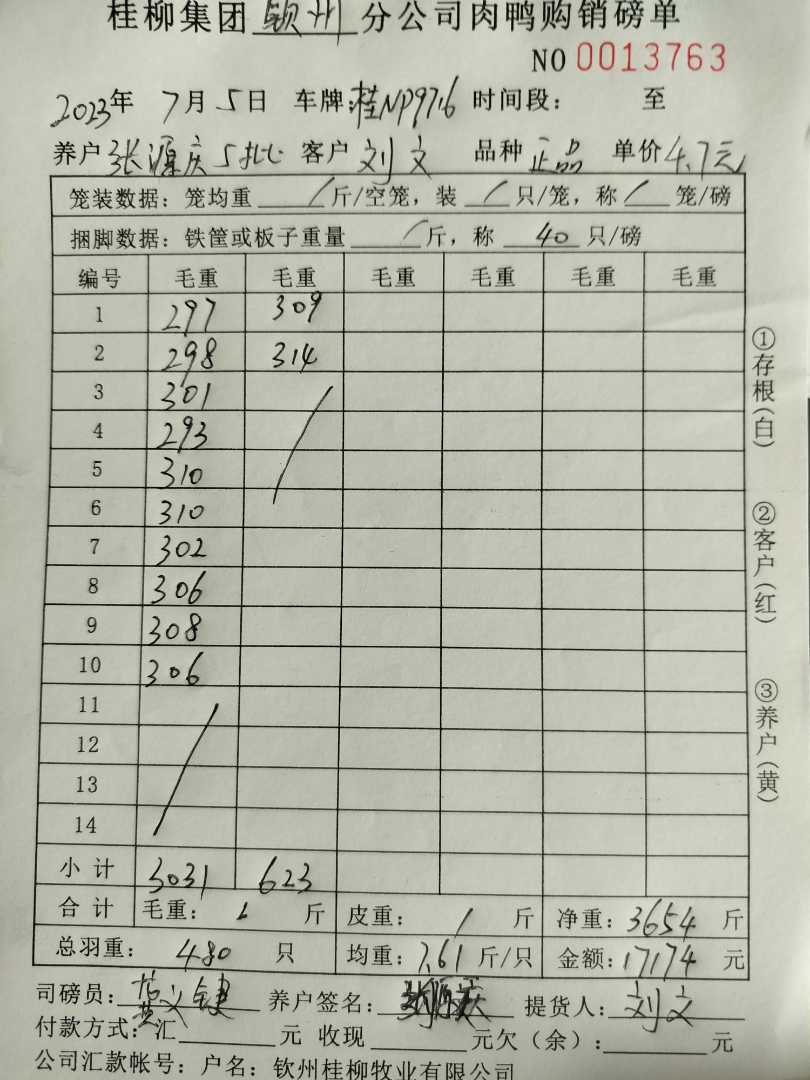 桂柳集团 钦州 分公司肉鸭购销磅单
NO 0013763
2023年 7月 5日 车牌:桂NP9716 时间段: 至
养户 张源庆 客户 刘文 品种 正品 单价 4.7元
笼装数据: 笼均重 / 斤/空笼, 装 / 只/笼, 称 / 笼/磅
捆脚数据: 铁筐或板子重量 / 斤, 称 40 只/磅
编号 毛重 毛重 毛重 毛重 毛重 毛重
1 297 309
2 298 314
3 301
4 293
5 310
6 310
7 302
8 306
9 308
10 306
11
12
13
14
小计 3031 623
合计 毛重: 斤 皮重: / 斤 净重: 3654 斤
总羽重: 480 只 均重: 7.61 斤/只 金额: 17174 元
司磅员: 养户签名: 张源庆 提货人: 刘文
付款方式: 汇 元 收现 元欠(余): 元
公司汇款帐号: 户名: 钦州桂柳牧业有限公司
①存根(白)
②客户(红)
③养户(黄)